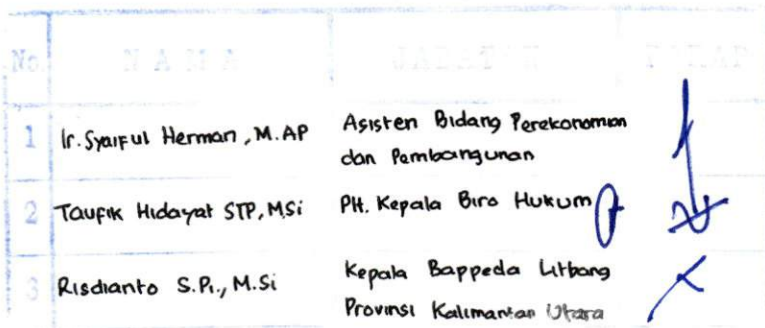 No NAMA JABATAN PARAF
1 Ir. Syaiful Herman, M.AP Asisten Bidang Perekonomian
dan Pembangunan
2 Taufik Hidayat STP, M.Si Plt. Kepala Biro Hukum
3 Risdianto S.Pi., M.Si Kepala Bappeda Litbang
Provinsi Kalimantan Utara